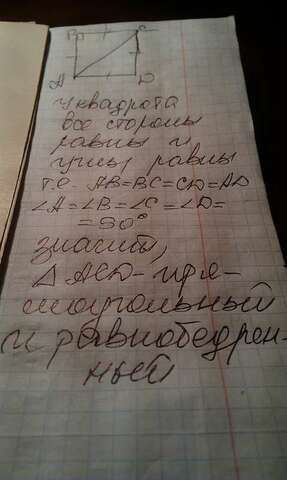 B C
A D
У квадрота
все стороны
равны и
углы равны
т.е. AB=BC=CD=AD
∠A=∠B=∠C=∠D=
=90°
значит,
△ACD-пря-
моугольный
и равнобедрен-
ный